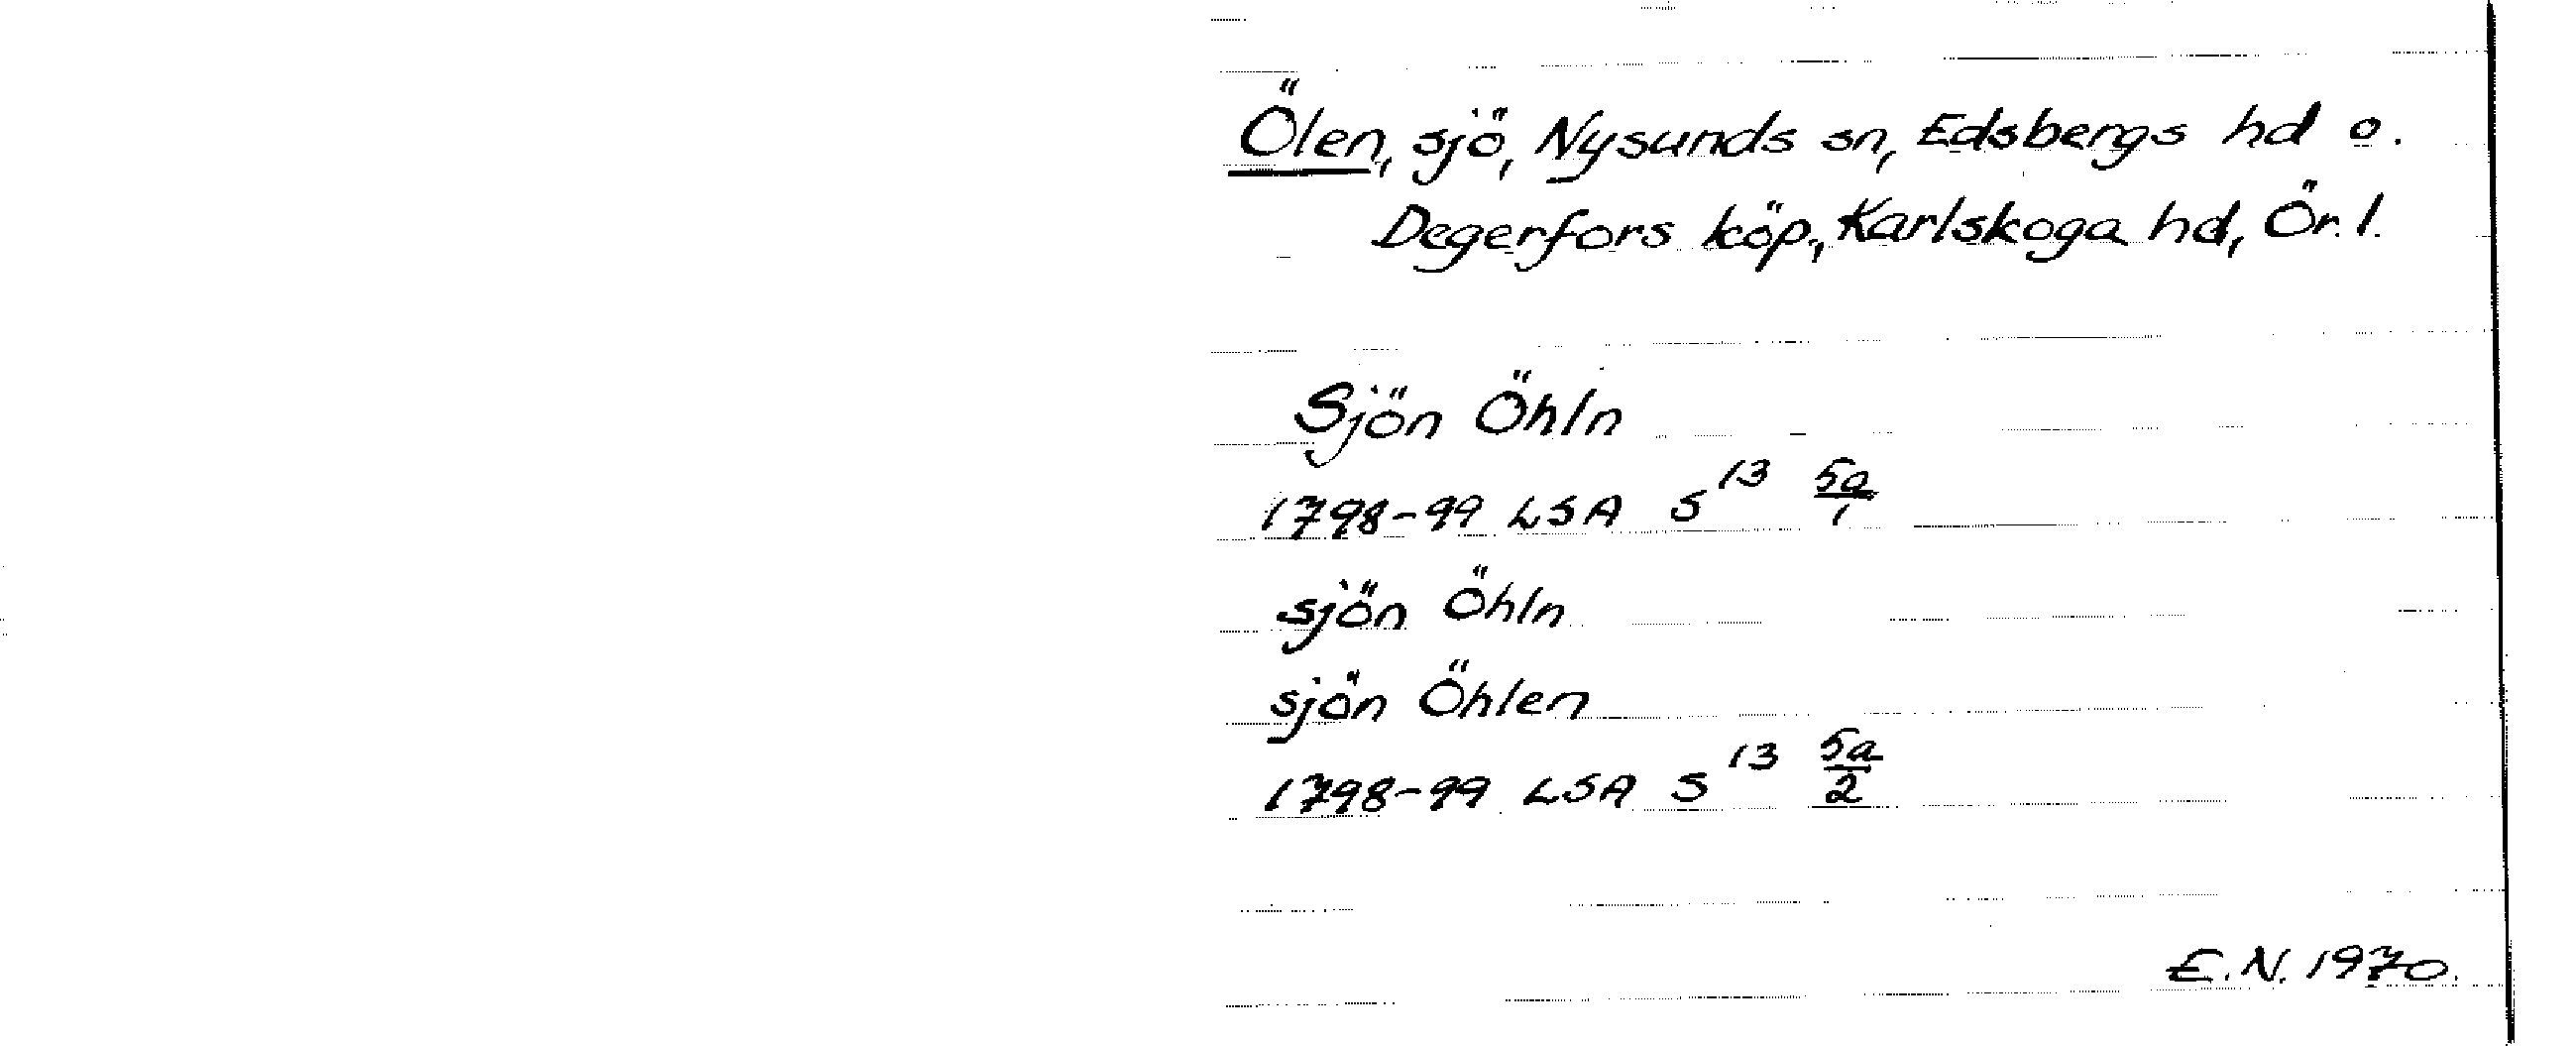 Ölen, sjö, Nysunds sn, Edsbergs hd o.
Degerfors köp., Karlskoga hd, Ör. l.
Sjön Öhln
1798-99 LSA S 13 5a/1
sjön Öhln
sjön Öhlen
1798-99 LSA S 13 5a/2
E.N. 1970.